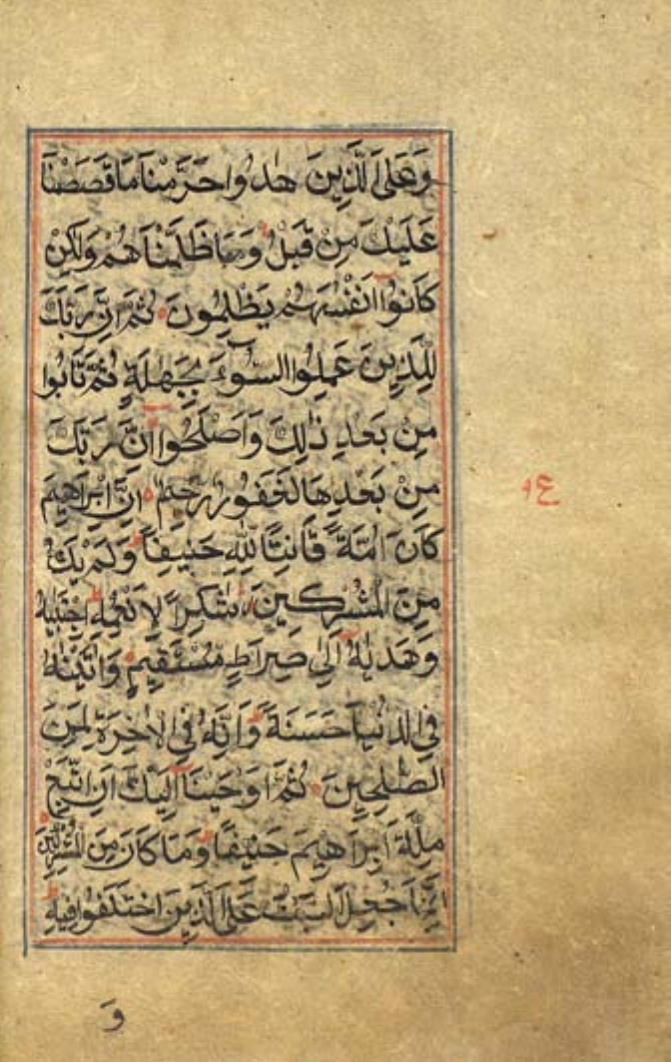 وَعَلَى الَّذِينَ هَادُوا حَرَّمْنَا مَا قَصَصْنَا
عَلَيْكَ مِنْ قَبْلُ وَمَا ظَلَمْنَاهُمْ وَلٰكِنْ
كَانُوا اَنْفُسَهُمْ يَظْلِمُونَ ثُمَّ اِنَّ رَبَّكَ
لِلَّذِينَ عَمِلُوا السُّوٓءَ بِجَهٰلَةٍ ثُمَّ تَابُوا
مِنْ بَعْدِ ذٰلِكَ وَاَصْلَحُوا اِنَّ رَبَّكَ
مِنْ بَعْدِهَا لَغَفُورٌ رَحِيمٌ اِنَّ اِبْرَاهِيمَ
كَانَ اُمَّةً قَانِتًا لِلّٰهِ حَنِيفًا وَلَمْ يَكُ
مِنَ الْمُشْرِكِينَ شَاكِرًا لِاَنْعُمِهِ اِجْتَبٰيهُ
وَهَدٰيهُ اِلٰى صِرَاطٍ مُسْتَقِيمٍ وَاٰتَيْنَاهُ
فِي الدُّنْيَا حَسَنَةً وَاِنَّهُ فِي الْاٰخِرَةِ لَمِنَ
الصّٰلِحِينَ ثُمَّ اَوْحَيْنَا اِلَيْكَ اَنِ اتَّبِعْ
مِلَّةَ اِبْرَاهِيمَ حَنِيفًا وَمَا كَانَ مِنَ الْمُشْرِكِينَ
اِنَّمَا جُعِلَ السَّبْتُ عَلَى الَّذِينَ اخْتَلَفُوا فِيهِ
وَ